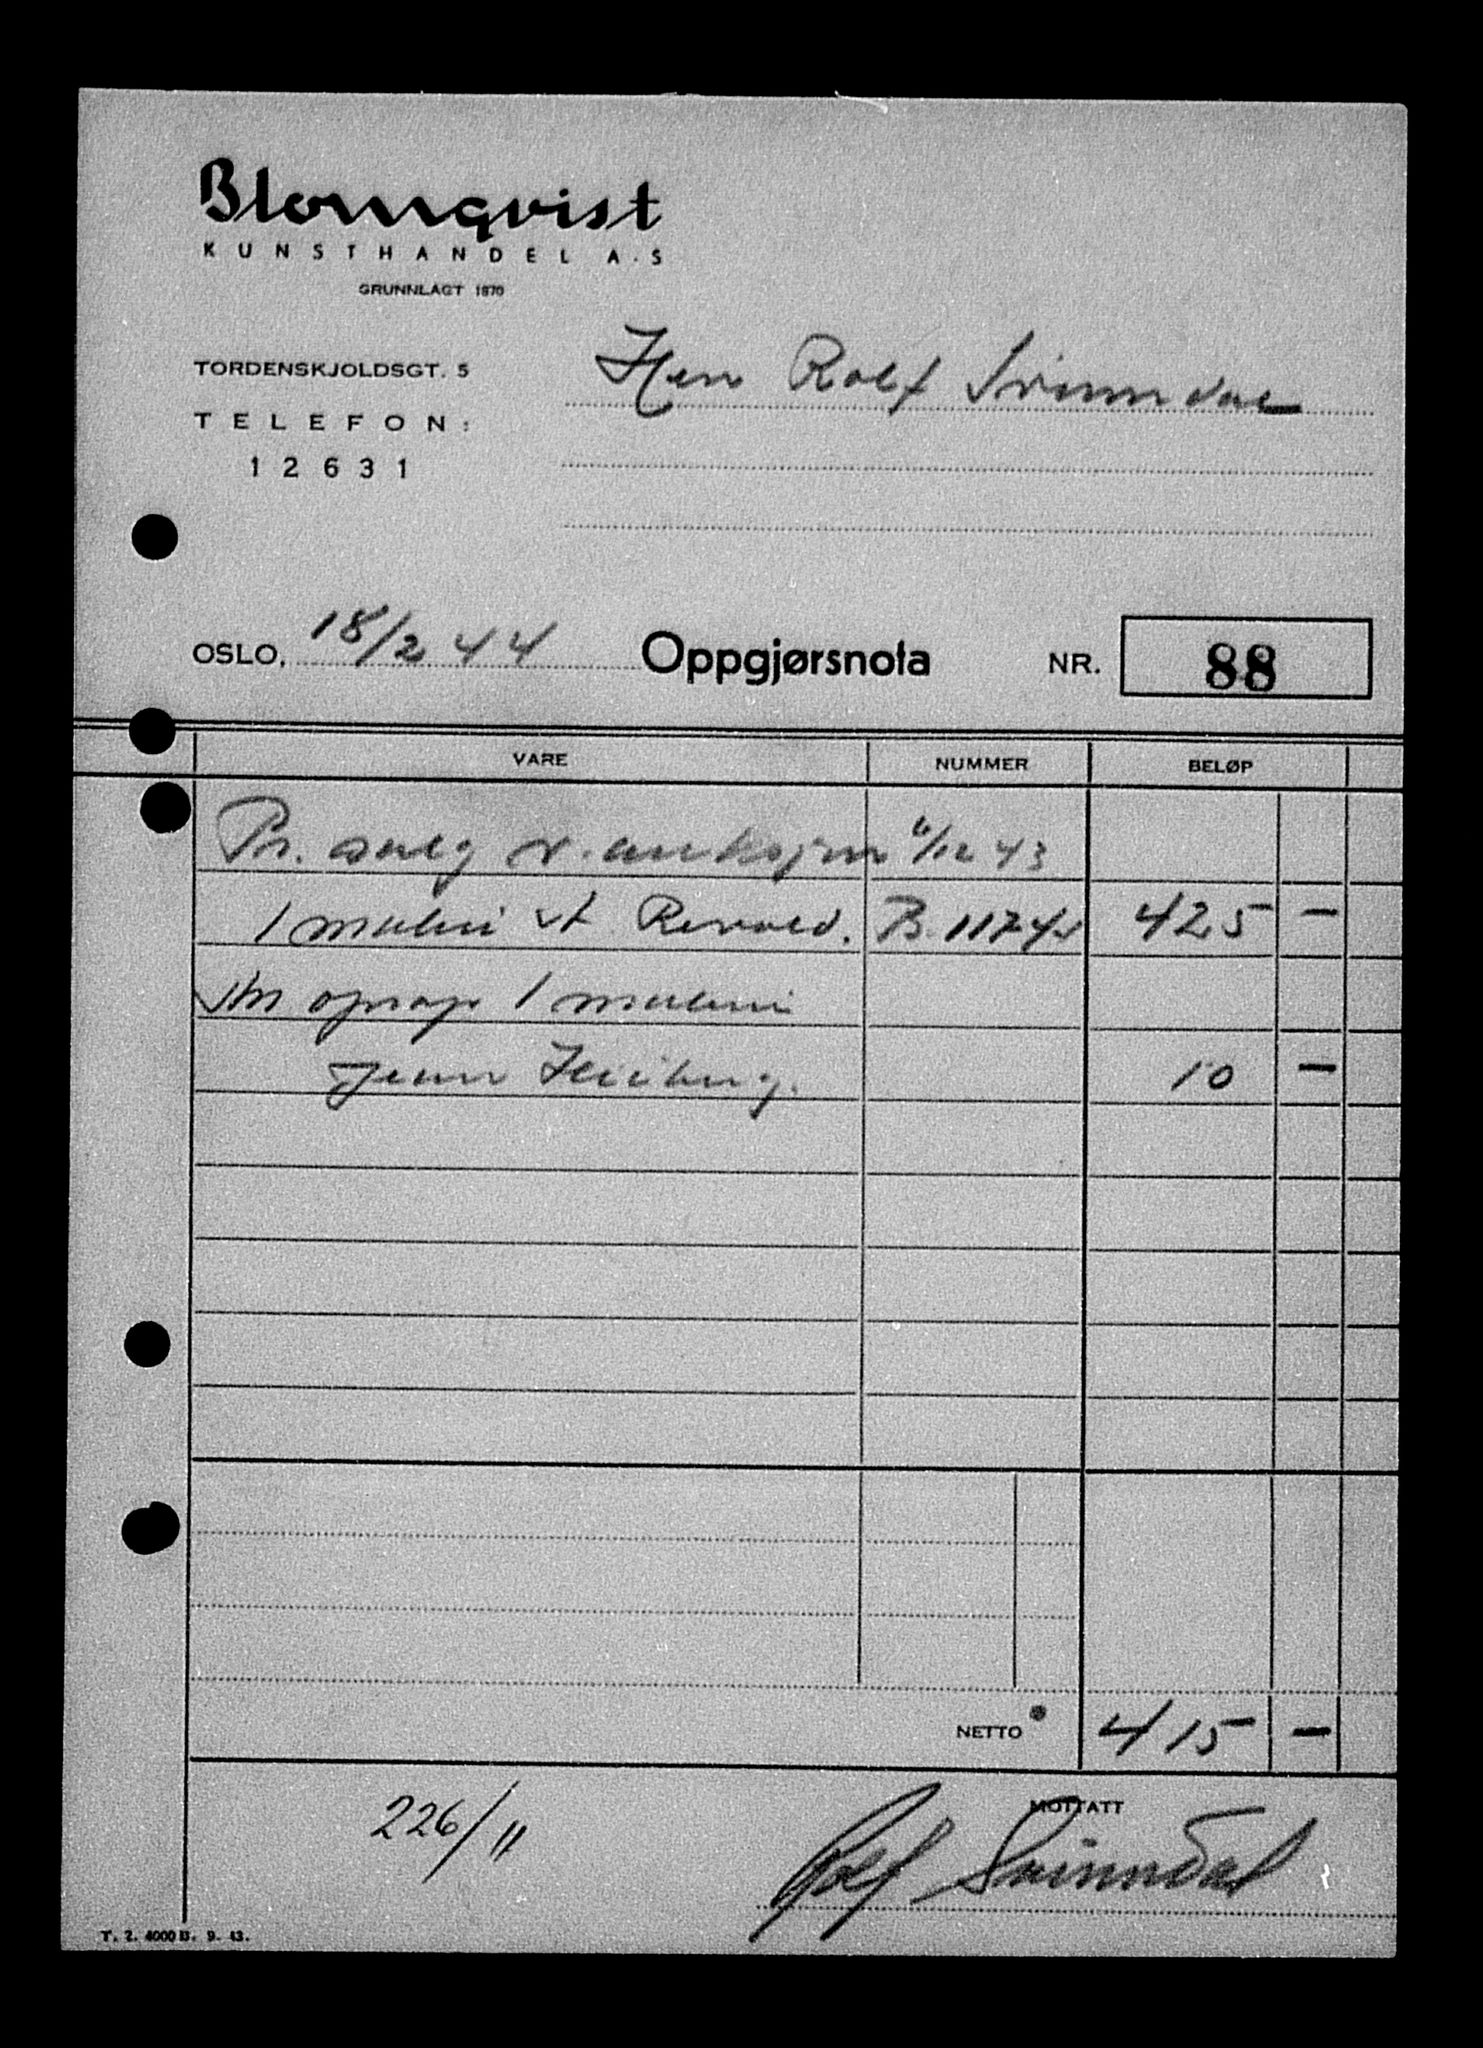 Blomqvist
KUNSTHANDEL A.S
GRUNNLAGT 1870
TORDENSKJOLDSGT. 5
TELEFON:
12631
Herr Rolf Svinndal
OSLO, 18/2 44 Oppgjørsnota NR. 88
VARE NUMMER BELØP
Pr. salg v. auksjon 6/12 43
1 maleri A. Revold. B. 11742 425 —
opsop 1 maleri
Jean Heiberg. 10 —
NETTO 415 —
226/11
MOTTATT
Rolf Svinndal
T. 2. 4000 B. 9. 43.